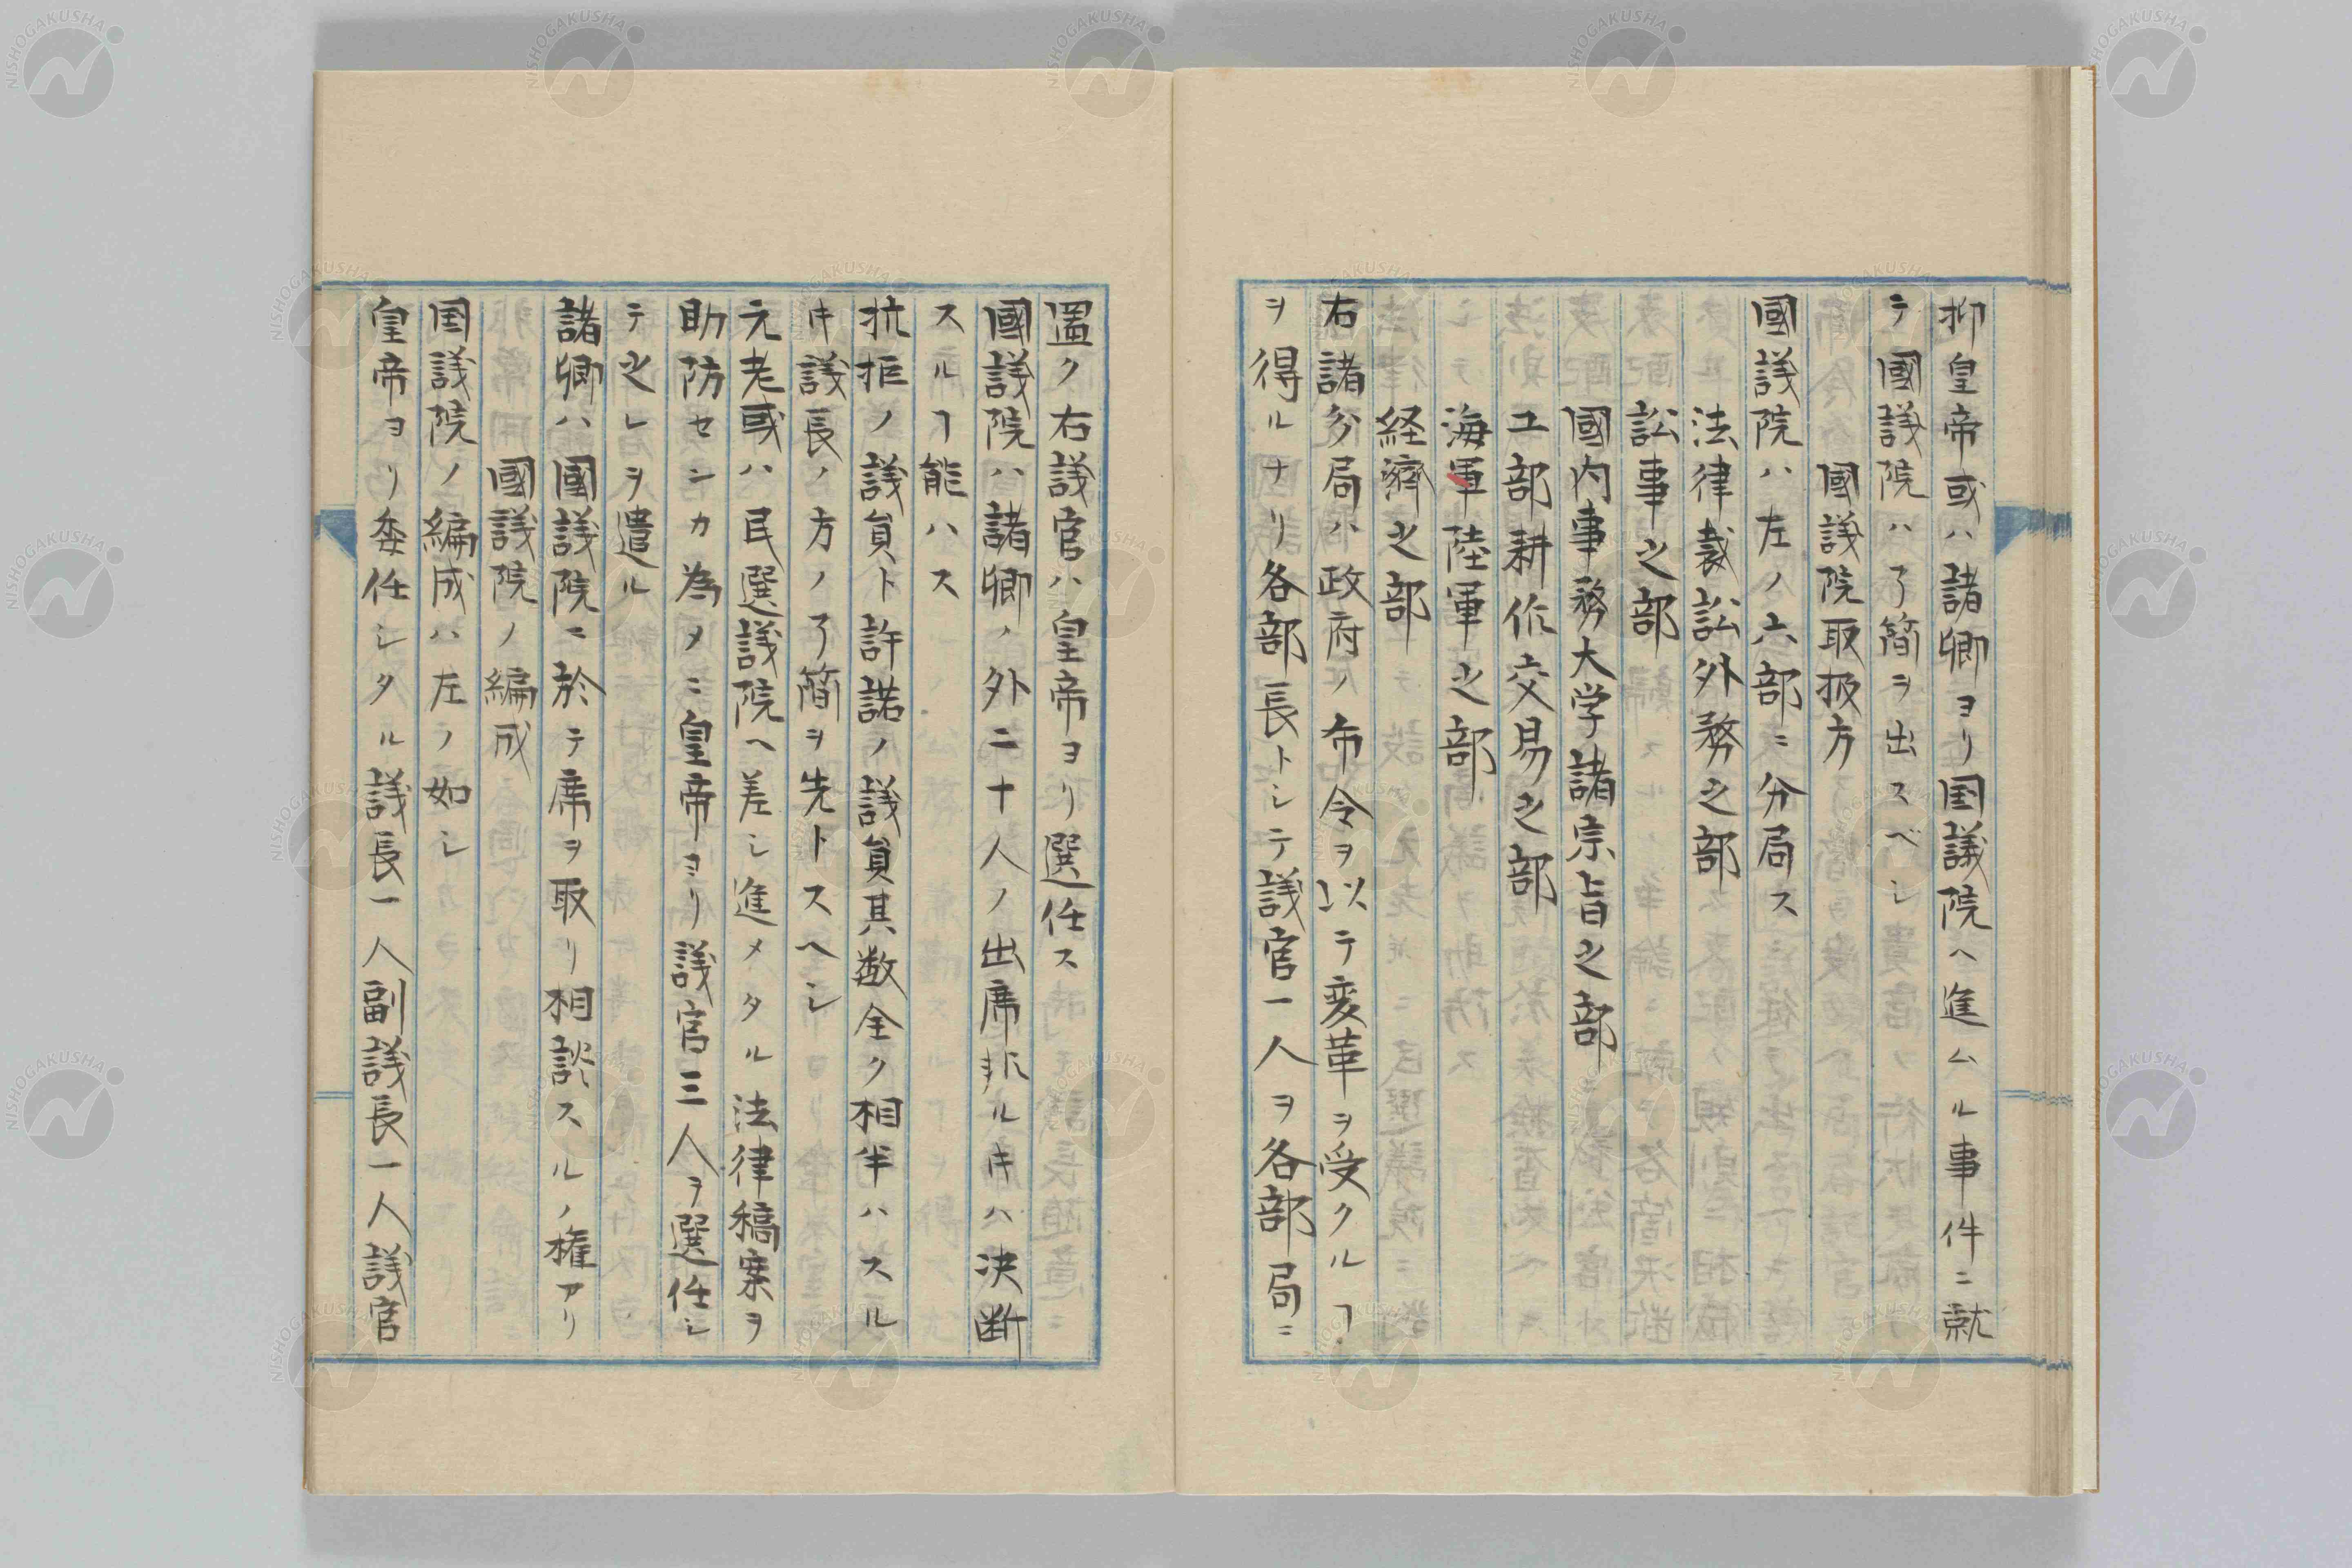 抑皇帝或ハ諸卿ヨリ国議院ヘ進ムル事件ニ就
テ國議院ハ了簡ヲ出スベシ
國議院取扱方
國議院ハ左ノ六部ニ分局ス
法律裁訟外務之部
訟事之部
國内事務大学諸宗旨之部
工部耕作交易之部
海軍陸軍之部
経濟之部
右諸分局ハ政府ノ布令ヲ以テ変革ヲ受クルヿ
ヲ得ルナリ各部長トシテ議官一人ヲ各部局ニ
置ク右議官ハ皇帝ヨリ選任ス
國議院ハ諸卿ノ外二十人ノ出席非ルキハ决断
スルヿ能ハス
抗拒ノ議員ト許諾ノ議員其数全ク相半ハスル
キ議長ノ方ノ了簡ヲ先トスヘシ
元老或ハ民選議院ヘ差シ進メタル法律稿案ヲ
助防センカ為メニ皇帝ヨリ議官三人ヲ選任シ
テ之レヲ遣ル
諸卿ハ國議院ニ於テ席ヲ取リ相談スルノ権アリ
國議院ノ編成
国議院ノ編成ハ左ノ如シ
皇帝ヨリ委任シタル議長一人副議長一人議官
NISHOGAKUSHA